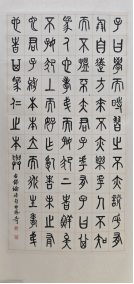 子曰學而時習之不亦說乎有
朋自遠方來不亦樂乎人不知
而不慍不亦君子乎有子曰其
爲人也孝弟而好犯上者鮮矣
不好犯上而好作亂者未之有
也君子務本本立而道生孝弟
也者其爲仁之本與